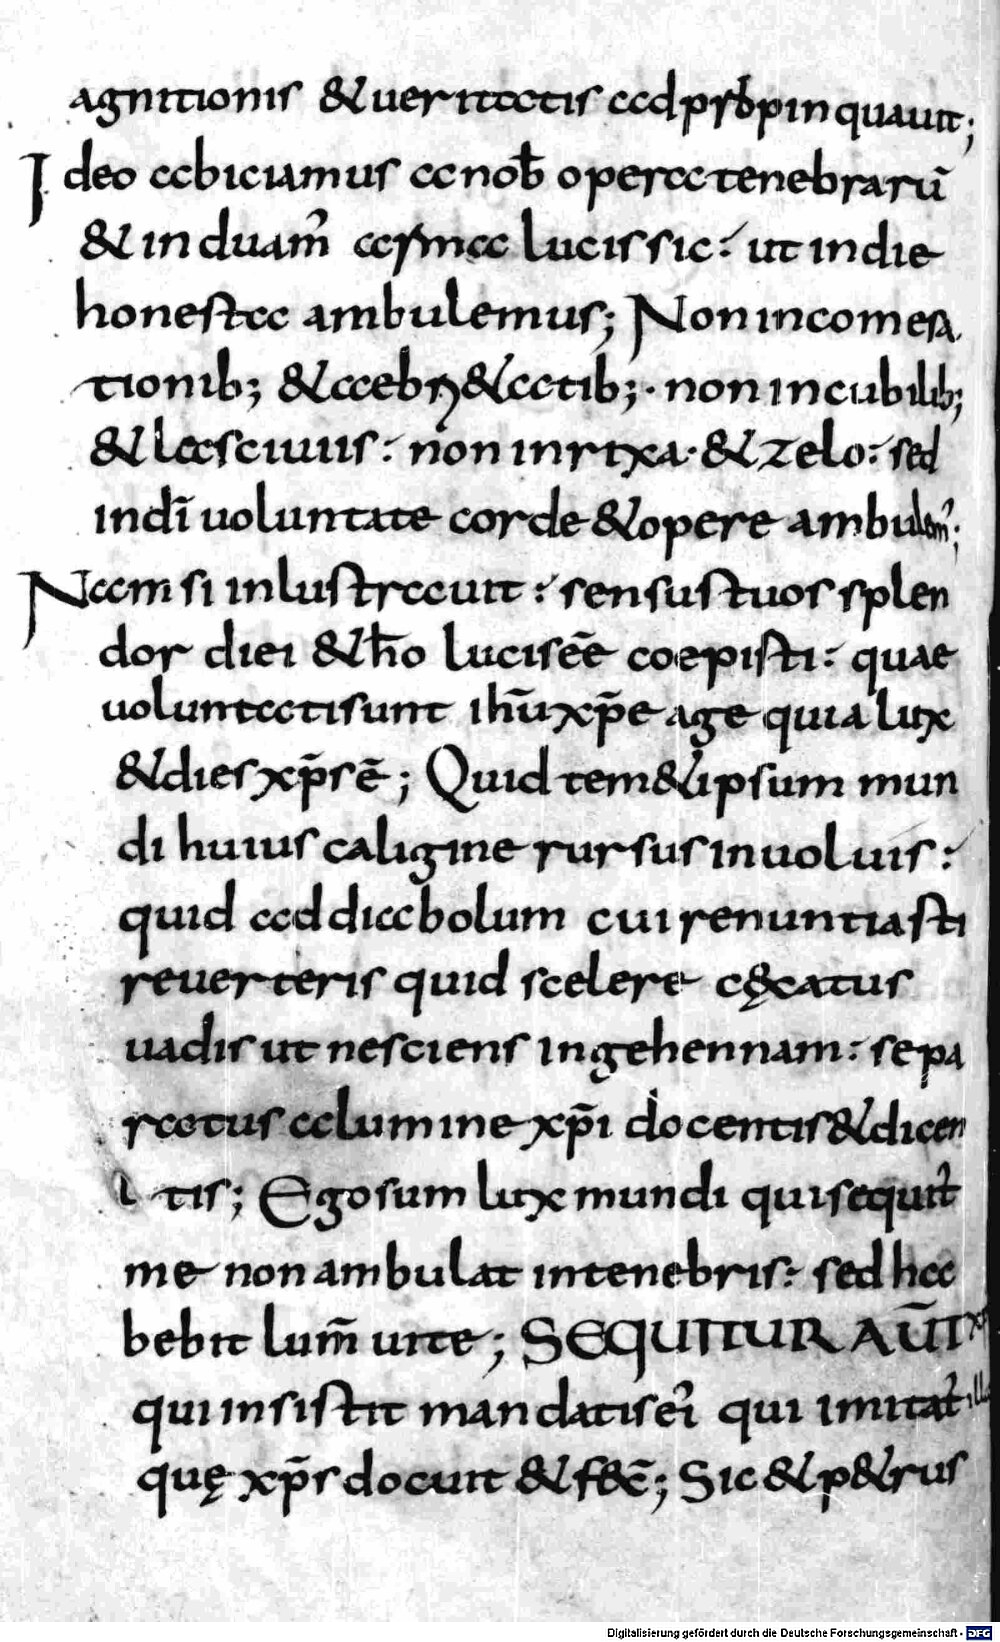 agnitionis & ueritatis adp̄ropinquauit;
Ideo abiciamus a nob̄ opera tenebrarū
& induam᾽ arma lucis sic: ut in die
honesta ambulemus; Non in comesa
tionib; & aebri&atib;· non in cubilib;
& lasciuiis: non in rixa· & zelo: sed
in dī uoluntate corde & opere ambulem᾽;
Nam si inlustrauit: sensus tuos splen
dor diei & h̄o lucis eē coepisti: quae
uoluntatis unt ih̄u xp̄e age quia lux
& dies xp̄s ē; Quid tem&ipsum mun
di huius caligine rursus inuoluis:
quid ad diabolum cui renuntiasti
reuerteris quid scelere cęcatus
uadis ut nesciens in gehennam: sepa
ratus a lumine xp̄i docentis & dicen
tis; Ego sum lux mundi qui sequit᾽
me non ambulat in tenebris: sed ha
bebit lum̄ uite; SEQUITUR AŪT xp̄
qui insistit mandatis ei᾽ qui imitat᾽ illa
quę xp̄s docuit & fec̄; Sic & p&rus
Digitalisierung gefördert durch die Deutsche Forschungsgemeinschaft - DFG